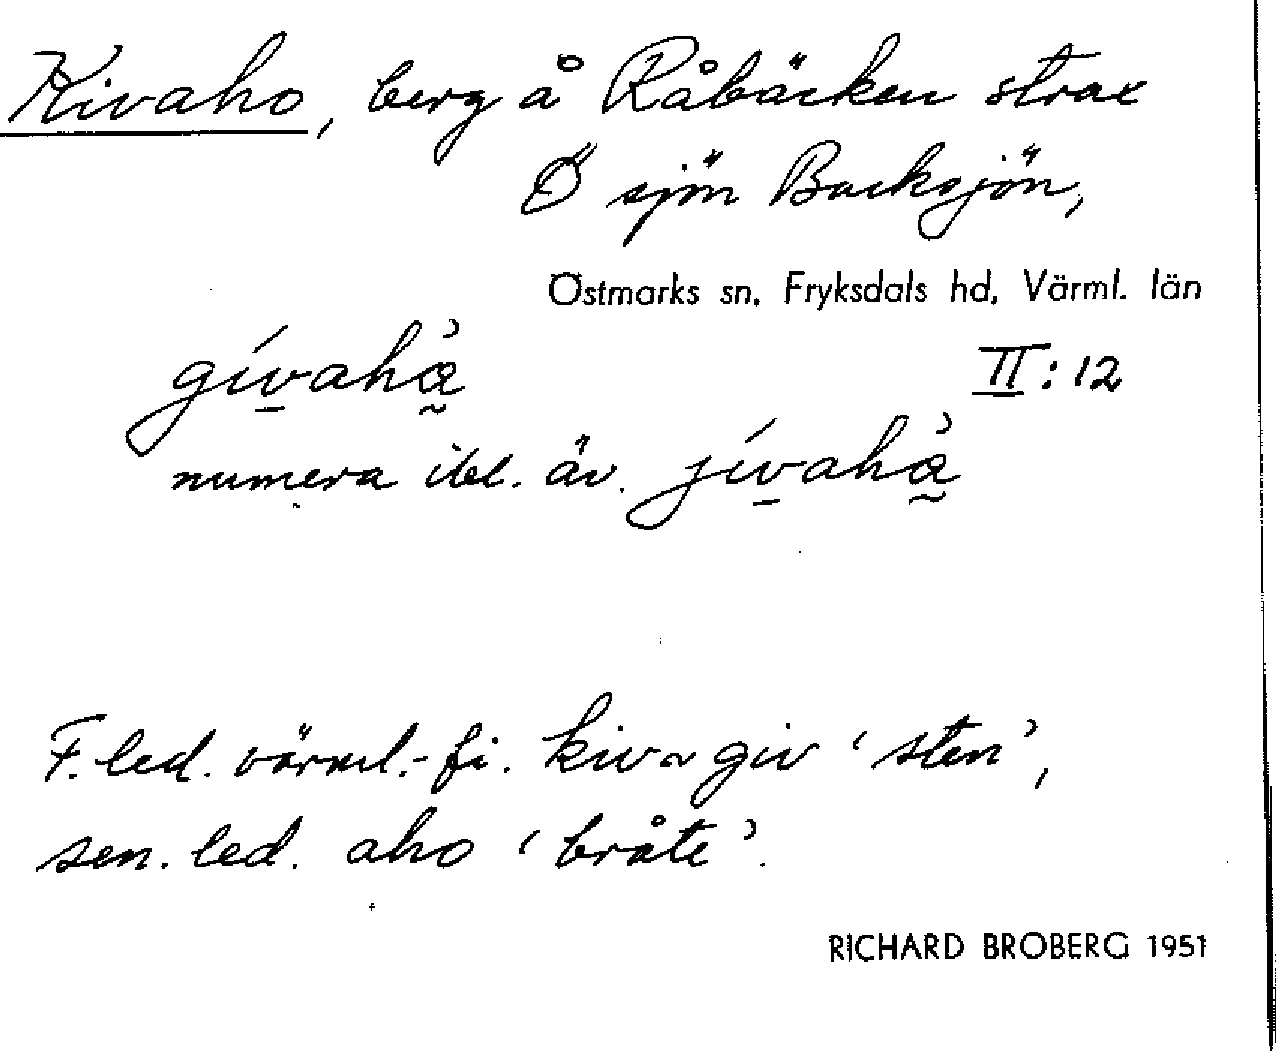 Kivaho, berg å Råbäcken strax
Ö sjön Backsjön,
Östmarks sn, Fryksdals hd, Värml. län
gívahå̀
II:12
numera ibl. äv. jívahå̀
F. led. värml.-fi. kiv ~ giv ‘sten’,
sen. led. aho ‘bråte’.
RICHARD BROBERG 1951